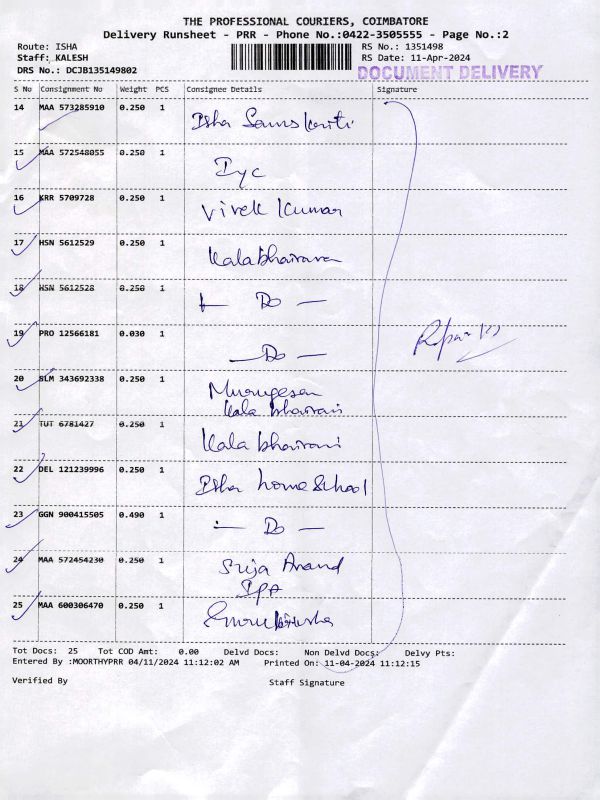 THE PROFESSIONAL COURIERS, COIMBATORE
Delivery Runsheet - PRR - Phone No.:0422-3505555 - Page No.:2
Route: ISHA RS No.: 1351498
Staff: KALESH RS Date: 11-Apr-2024
DRS No.: DCJB135149802 DOCUMENT DELIVERY
S No Consignment No Weight PCS Consignee Details Signature
14 MAA 573285910 0.250 1 Isha Samskriti
15 MAA 572548055 0.250 1 Iyc
16 KRR 5709728 0.250 1 Vivek Kumar
17 HSN 5612529 0.250 1 Kalabhairava
18 HSN 5612528 0.250 1 - Do -
19 PRO 12566181 0.030 1 - Do -
20 SLM 343692338 0.250 1 Murugesan
Kala bhairavi
21 TUT 6781427 0.250 1 Kala bhairavi
22 DEL 121239996 0.250 1 Isha home School
23 GGN 900415505 0.490 1 - Do -
24 MAA 572454230 0.250 1 Srija Anand
25 MAA 600306470 0.250 1
Tot Docs: 25 Tot COD Amt: 0.00 Delvd Docs: Non Delvd Docs: Delvy Pts:
Entered By :MOORTHYPRR 04/11/2024 11:12:02 AM Printed On: 11-04-2024 11:12:15
Verified By Staff Signature